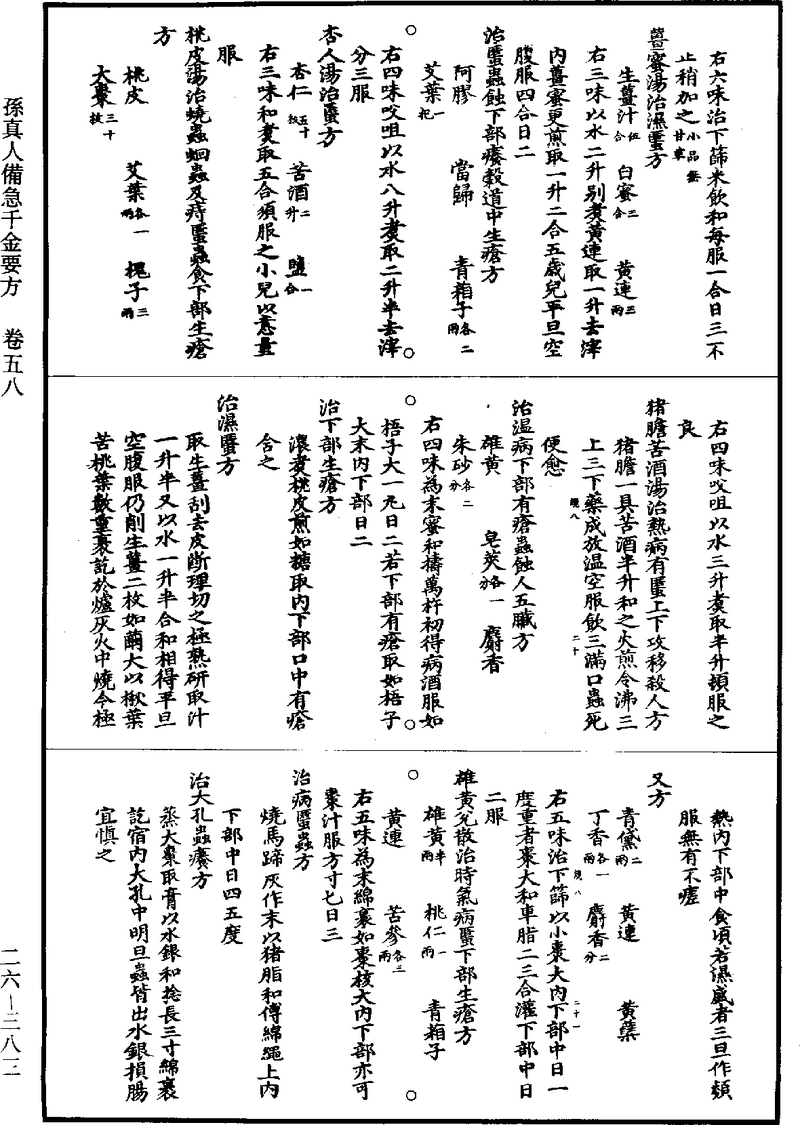 右六味治下篩米飲和每服一合日三不
止稍加之小品無甘草
薑蜜湯治濕䘌方
生薑汁伍合 白蜜三合 黃連三兩
右三味以水二升别煮黃連取一升去滓
内薑蜜更煎取一升二合五歲兒平旦空
腹服四合日二
治䘌蟲蝕下部癢穀道中生瘡方
阿膠 當歸 青葙子各二兩
艾葉一把
右四味㕮咀以水八升煮取二升半去滓
分三服
杏人湯治䘌方
杏仁五十枚 苦酒二升 鹽一合
右三味和煮取五合頓服之小兒以意量
服
桃皮湯治蟯蟲蛔蟲及痔䘌蟲食下部生瘡
方
桃皮 艾葉各一兩 槐子三兩
大棗三十枚
右四味㕮咀以水三升煮取半升頓服之
良
猪膽苦酒湯治熱病有䘌上下攻移殺人方
猪膽一具苦酒半升和之火煎令沸三
上三下藥成放温空服飲三滿口蟲死
便愈
治温病下部有瘡蟲蝕人五臟方
雄黃 皂莢各一分 麝香
朱砂各二分
右四味為末蜜和擣萬杵初得病酒服如
梧子大一丸日二若下部有瘡取如梧子
大末内下部日二
治下部生瘡方
濃煮桃皮煎如糖取内下部口中有瘡
含之
治濕䘌方
取生薑刮去皮斷理切之極熟研取汁
一升半又以水一升半合和相得平旦
空腹服仍削生薑二枚如繭大以楸葉
苦桃葉數重裹訖於爐灰火中燒令極
熱内下部中食頃若濕盛者三旦作頻
服無有不瘥
又方
青黛二兩 黃連 黃蘗
丁香各一兩 麝香二分
右五味治下篩以小棗大内下部中日一
度重者棗大和車脂二三合灌下部中日
二服
雄黃兌散治時氣病䘌下部生瘡方
雄黃半兩 桃仁一兩 青葙子
黃連 苦參各三兩
右五味為末綿裹如棗核大内下部亦可
棗汁服方寸七日三
治病䘌蟲方
燒馬蹄灰作末以猪脂和傅綿繩上内
下部中日四五度
治大孔蟲癢方
蒸大棗取膏以水銀和捻長三寸綿裹
訖宿内大孔中明旦蟲皆出水銀損腸
宜慎之
孫真人備急千金要方 卷五八
二六—三八二